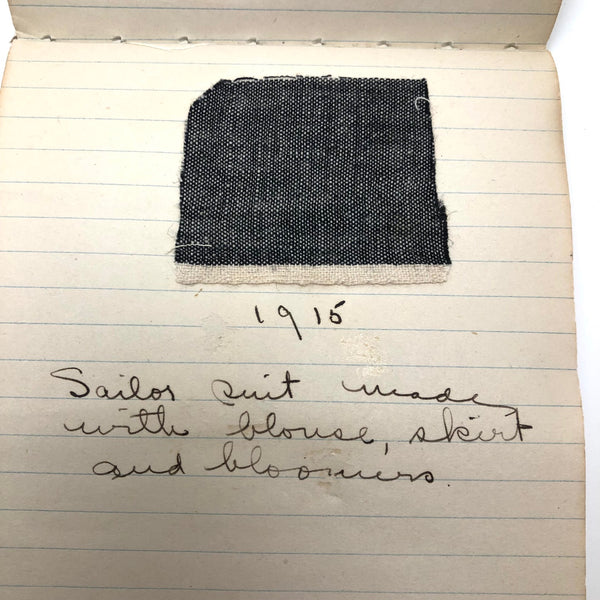 1915
Sailor suit made
with blouse, skirt
and bloomers.